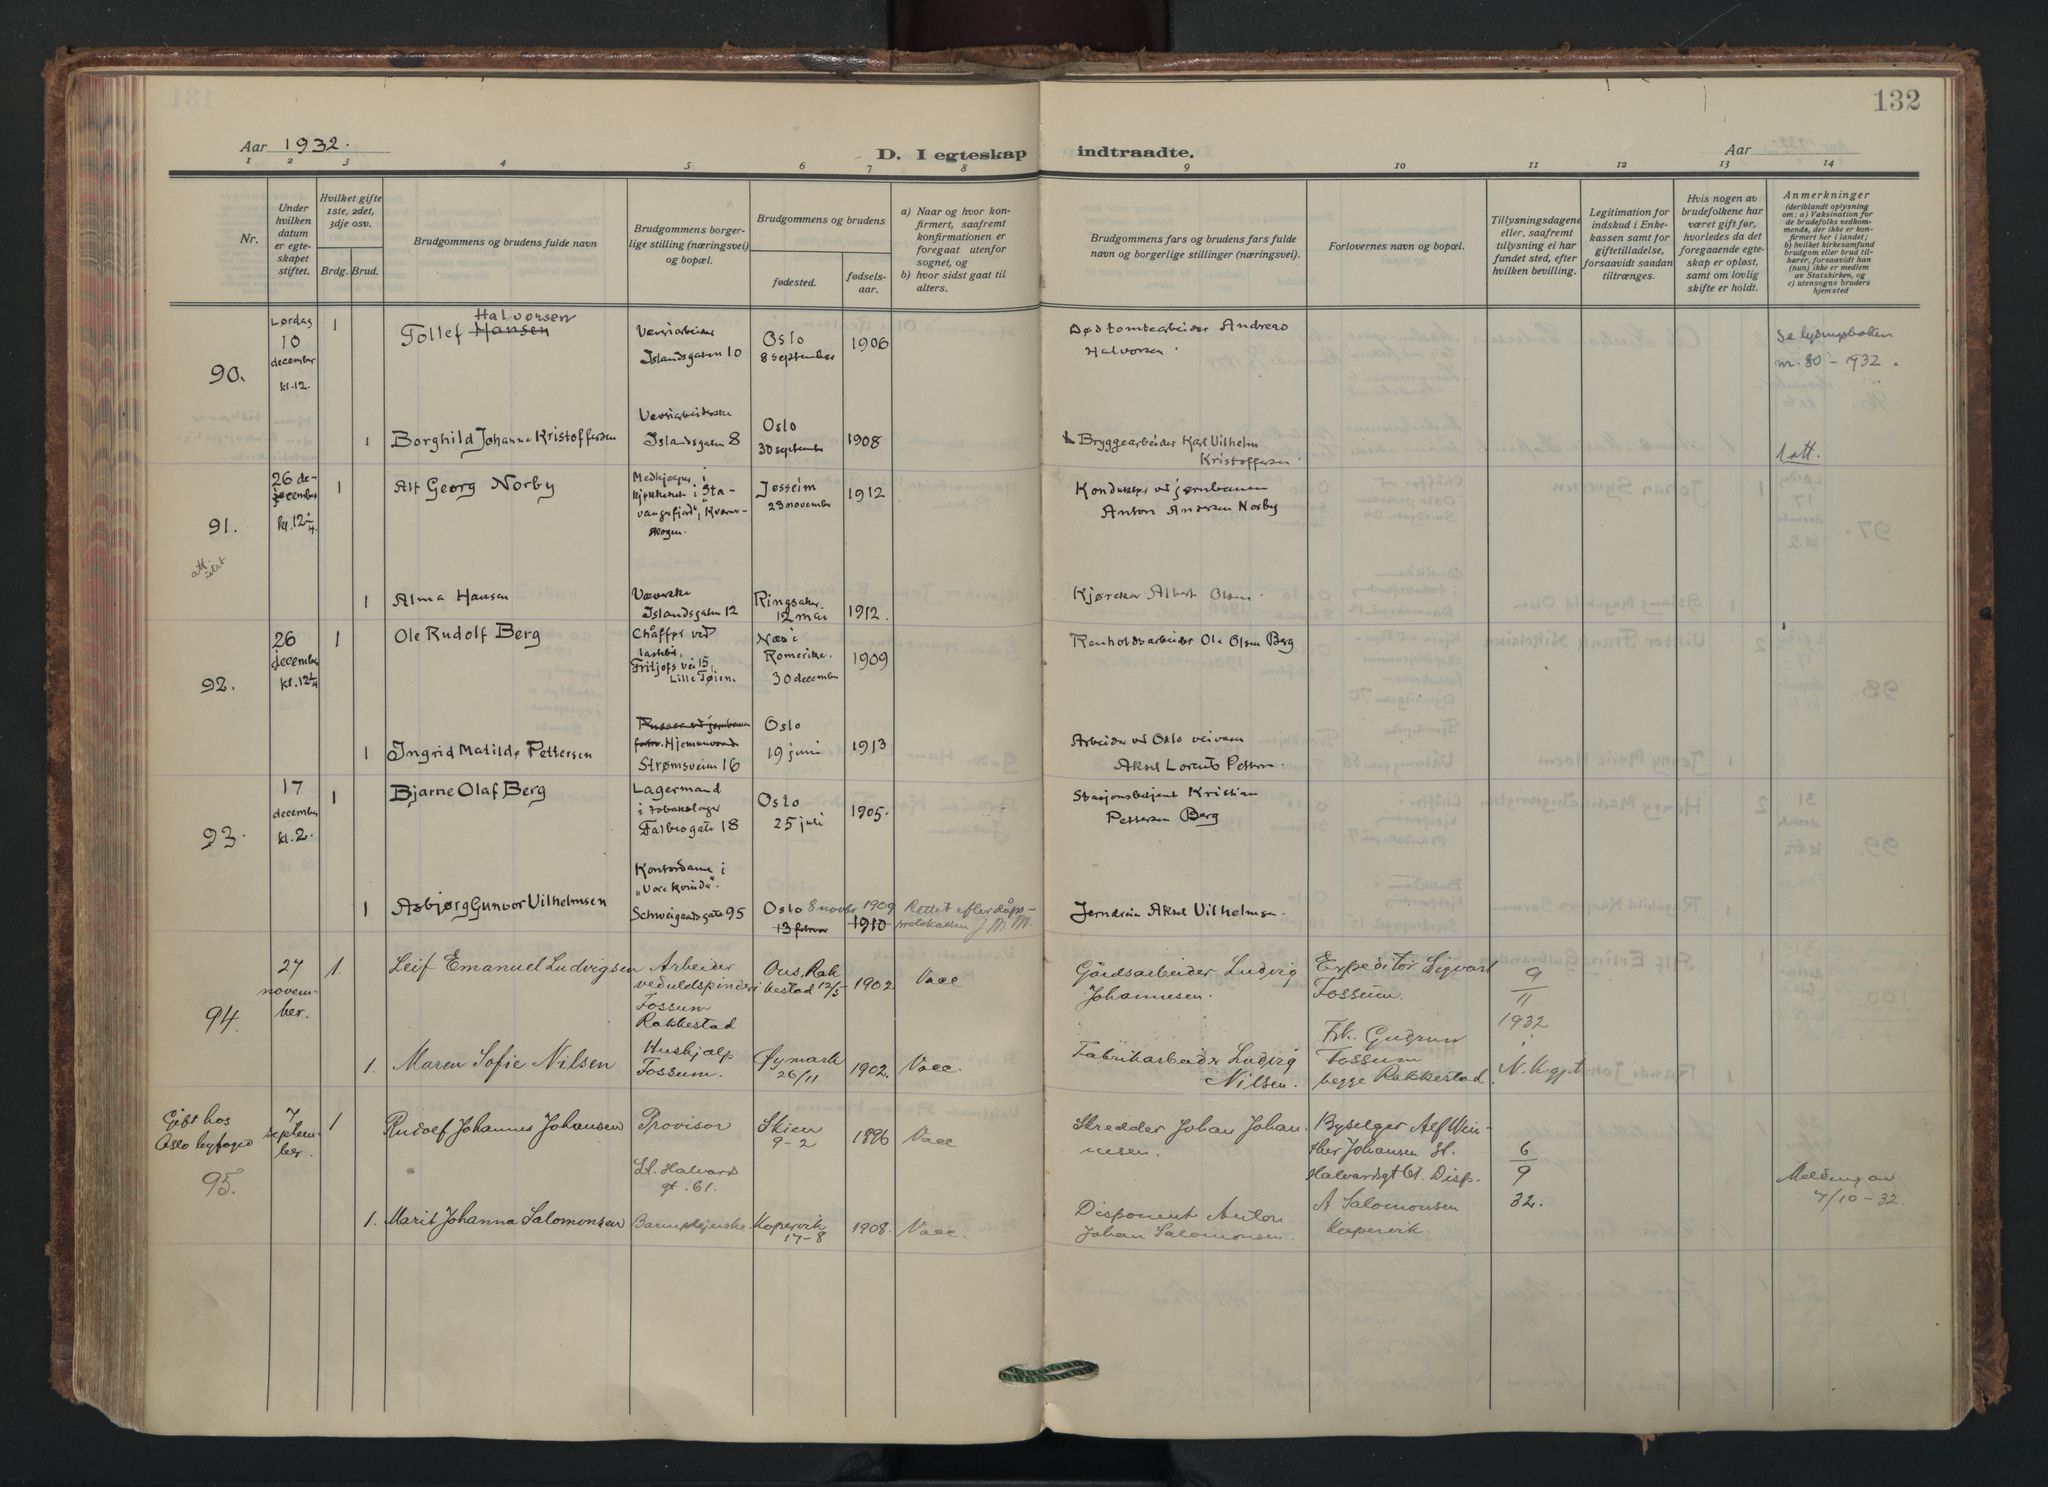 132
Aar 1932.
D. I egteskap indtraadte.
Aar
1 2 3 4 5 6 7 8 9 10 11 12 13 14
Nr.
Under
hvilken
datum
er egte-
skapet
stiftet.
Hvilket gifte
1ste, 2det,
3dje osv.
Brdg. Brud.
Brudgommens og brudens fulde navn
Brudgommens borger-
lige stilling (næringsvei)
og bopæl.
Brudgommens og brudens
fødested.
fødsels-
aar.
a) Naar og hvor kon-
firmert, saafremt
konfirmationen er
foregaat utenfor
sognet, og
b) hvor sidst gaat til
alters.
Brudgommens fars og brudens fars fulde
navn og borgerlige stillinger (næringsvei).
Forlovernes navn og bopæl.
Tillysningsdagene
eller, saafremt
tillysning ei har
fundet sted, efter
hvilken bevilling.
Legitimation for
indskud i Enke-
kassen samt for
giftetilladelse,
forsaavidt saadan
tiltrænges.
Hvis nogen av
brudefolkene har
været gift før,
hvorledes da det
foregaaende egte-
skap er opløst,
samt om lovlig
skifte er holdt.
Anmerkninger
(deriblandt oplysning
om: a) Vaksination for
de brudefolks vedkom-
mende, der ikke er kon-
firmert her i landet;
b) hvilket kirkesamfund
brudgom eller brud til-
hører, forsaavidt han
(hun) ikke er medlem
av Statskirken, og
c) utensogns bruders
hjemsted
90.
Lørdag
10
december
kl. 12.
1
Halvorsen
Tollef Hansen
Islandsgaten 10
Oslo
8 september
1906
Død tomtearbeider Andreas
Halvorsen
Se lysningsboken
nr. 80 - 1932.
1
Borghild Johanne Kristoffersen
Islandsgaten 8
Oslo
30 september
1908
Bryggearbeider Karl Vilhelm
Kristoffersen
1 att.
91.
26 de-
cember
kl. 12 1/4
1
Alf Georg Norby
Medhjælper i
kjøkkenet i "Sta-
vangerfjord", Kværner-
skogen.
Jesseim
23 november
1912
Konduktør ved jernbanen
Anton Andersen Norby
1
Alma Hansen
Væverske
Islandsgaten 12
Ringsaker.
12 mai
1912.
Kjørekar Albert Olsen.
92.
26
december
kl. 12 1/4
1
Ole Rudolf Berg
Chåffør ved
lastebil,
Fritjofs vei 15
Lille Tøien.
Næs i
Romerike.
30 december
1909
Renholdsarbeider Ole Olsen Berg
1
Ingrid Matilde Pettersen
Hjemmevær.
Strømsveien 16
Oslo
19 juni
1913
Arbeider ved Oslo veivæsen
Aksel Lorents Pettersen
93.
17
december
kl. 2.
1
Bjarne Olaf Berg
Lagermand
i tobakslager
Falbesgate 18
Oslo
25 juli
1905.
Stasjonsbetjent Kristian
Pettersen Berg
1
Asbjørg Gunvor Vilhelmsen
Kontordame i
"Vore Kvinder".
Schweigaardsgate 95
Oslo 8 novbr 1909
13 februar 1910
Rettet efter dåps-
protokollen J. M. M.
Jerndreier Aksel Vilhelmsen.
94.
27
novem-
ber.
1.
Leif Emanuel Ludvigsen
Arbeider
ved uldspinderi
Fossum
Rakkestad
Ous, Rak
kestad 12/5
1902
Vacc
Gårdsarbeider Ludvig
Johannesen.
Expeditør Sigvart
Fossum.
9
11
1932
1.
Maren Sofie Nilsen
Hushjælp
Fossum.
Øymark
26/11
1902.
Vacc.
Fabrikarbeider Ludvig
Nilsen.
Frk. Gudrun
Fossum
begge Rakkestad.
Gift hos
Oslo byfoged
95.
7
Septem-
ber.
1
Rudolf Johannes Johansen
Provisor
St. Halvards
gt. 61.
Skien
9-2
1896
Vacc
Skredder Johan Johan
nesen.
Byselger Alf Win-
ther Johansen St.
Halvardsgt 61. Disp.
6
9
32.
Melding av
7/10-32.
1.
Marit Johanna Salomonsen
Barnepleierske
Kopervik
17-8
1908.
Vacc.
Disponent Anton
Johan Salomonsen.
A Salomonsen
Kopervik.